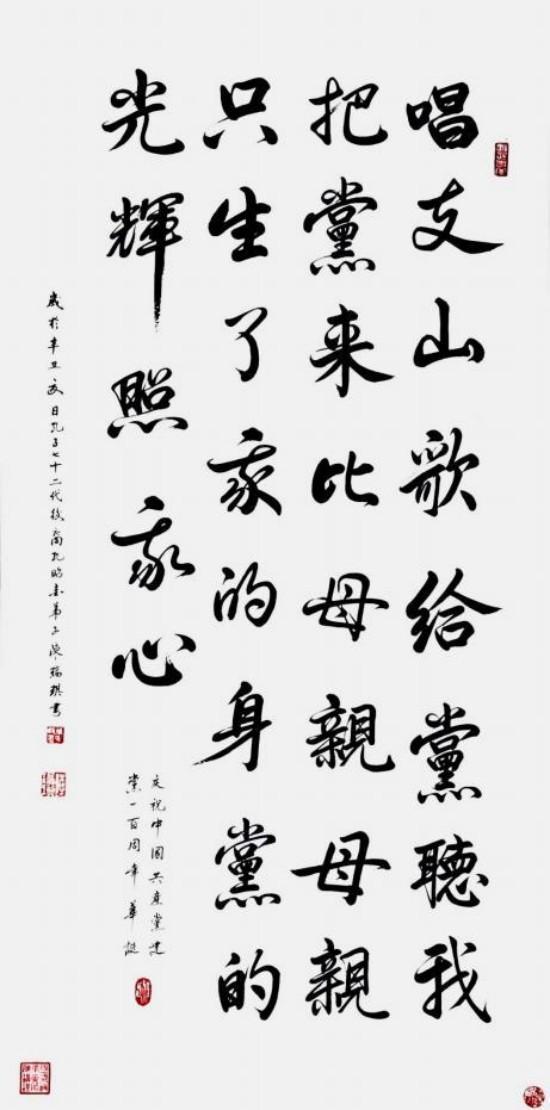 唱支山歌给黨聽我
把黨来比母親母親
只生了我的身黨的
光輝照我心
庆祝中國共産黨建
黨一百周年華誕
歲於辛丑夏日孔子七十二代後裔孔昭弟子陳琪書